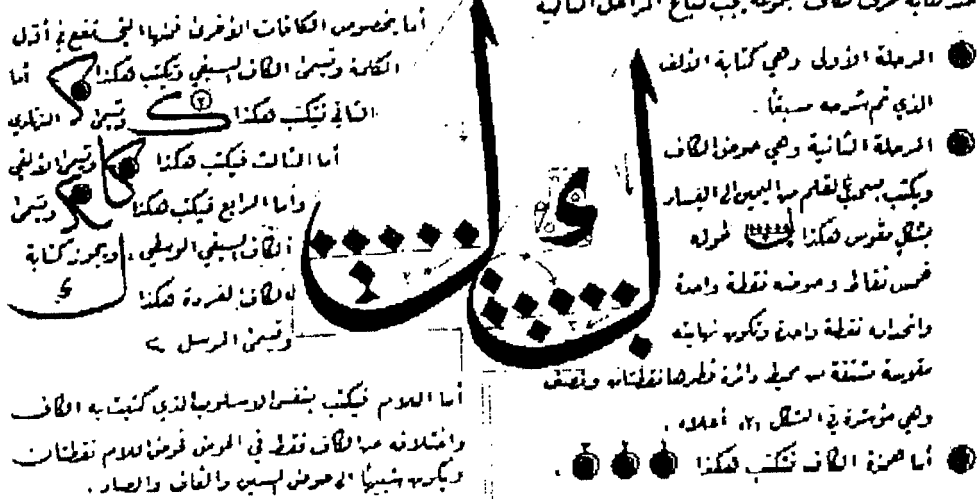 عند كتابة حرف الكاف مجموعة يجب اتباع المراحل التالية
المرحلة الأولى وهي كتابة الألف
الذي تم شرحه مسبقاً .
المرحلة الثانية وهي حوض الكاف
ويكتب بسحب القلم من اليمين الى اليسار
بشكل مقوس هكذا طوله
خمس نقاط وحوضه نقطة واحدة
وانحداره نقطة واحدة وتكون نهايته
مقوسة مشتقة من محيط دائرة قطرها نقطتان ونصف
وهي مؤشرة في الشكل (٢) أعلاه .
أما همزة الكاف فتكتب هكذا .
أما بخصوص الكافات الأخرى فمنها التي تقع في أول
الكلمة وتسمى الكاف السيفي وتكتب هكذا أما
الثاني فتكتب هكذا وتسمى
أما الثالث فيكتب هكذا وتسمى الألفي
وأما الرابع فيكتب هكذا وتسمى
الكاف السيفي الوسطي ، ويجوز كتابة
الكاف المفردة هكذا
وتسمى المرسل
أما اللام فيكتب بنفس الاسلوب الذي كتبت به الكاف
واختلافه عن الكاف فقط في الحوض فحوض اللام نقطتان
ويكون شبيهاً الى حوض السين والقاف والصاد .